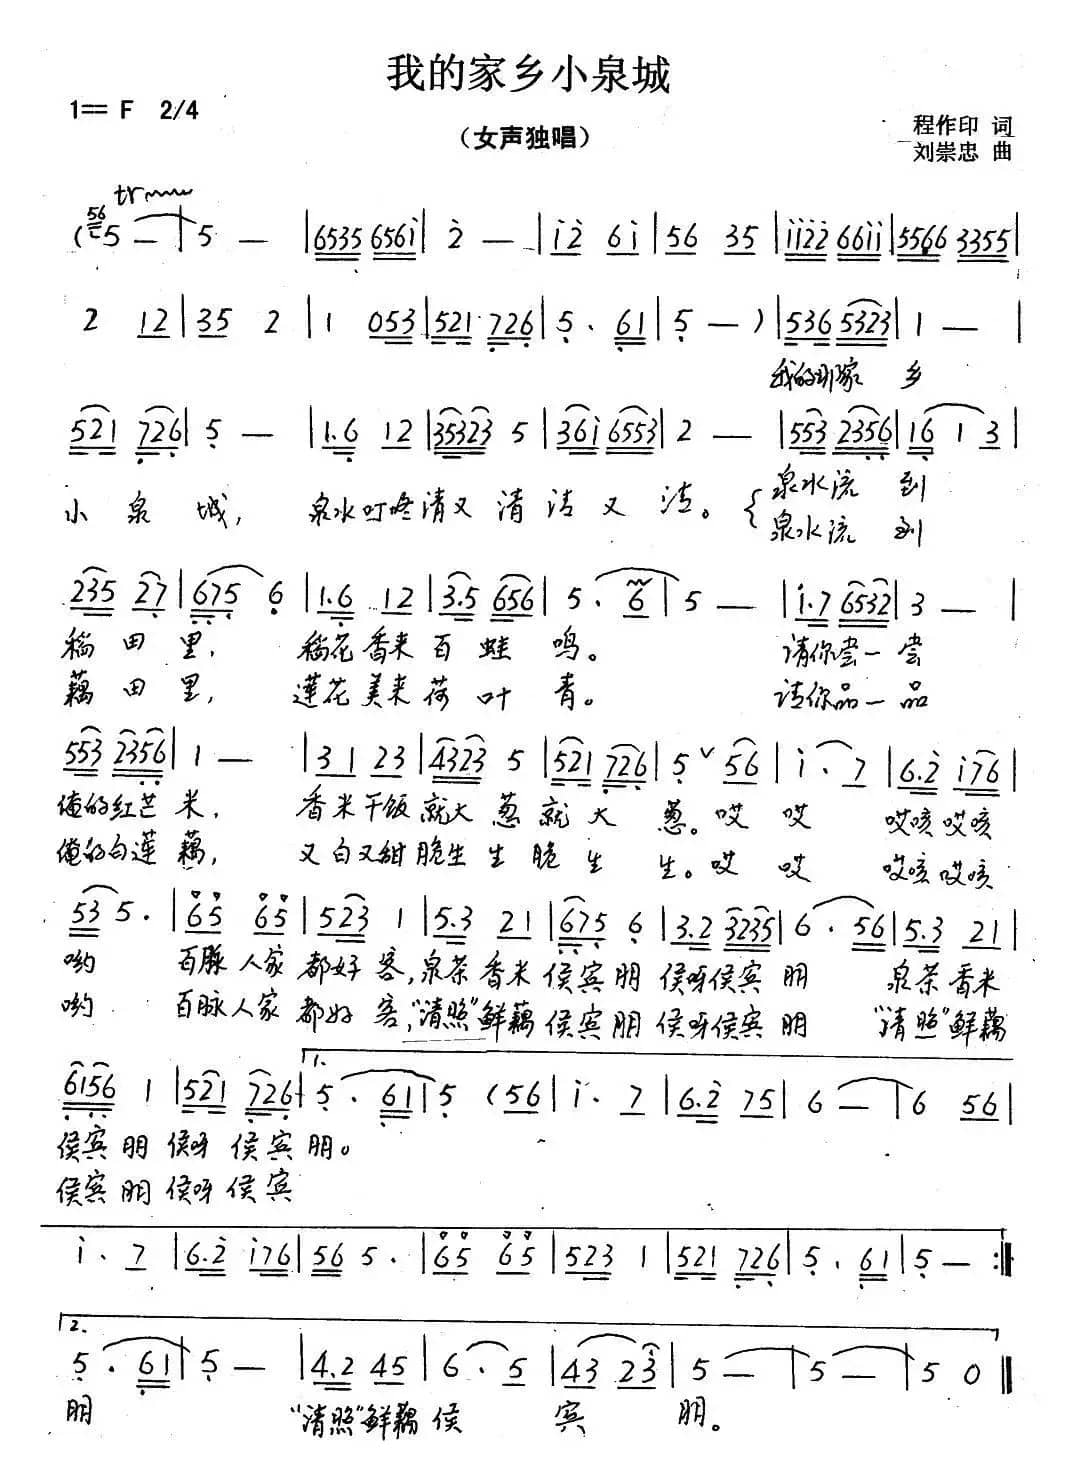 我的家乡小泉城
1== F 2/4
（女声独唱）
程作印 词
刘崇忠 曲
tr
(56 5 — | 5 — | 6535 656i | 2 — | i2 6i | 56 35 | ii22 66ii | 5566 3355 |
2 12 | 35 2 | 1 053 | 521 726 | 5. 61 | 5 — ) | 536 5323 | 1 — |
我的那家 乡
521 726 | 5 — | 1.6 12 | 35323 5 | 36i 6553 | 2 — | 553 2356 | 16 1 3 |
小 泉 城, 泉水叮咚清又 清 洁 又 洁。 { 泉水流 到
泉水流 到
235 27 | 675 6 | 1.6 12 | 3.5 656 | 5. 6 | 5 — | i.7 6532 | 3 — |
稻 田 里, 稻花香来百 蛙 鸣。 请你尝一尝
藕 田 里, 莲花美来荷 叶 青。 请你品一品
553 2356 | 1 — | 31 23 | 4323 5 | 521 726 | 5 ∨ 56 | i. 7 | 6.2 i76 |
俺的红芒 米, 香米干饭就大 葱就 大 葱。哎 哎 哎咳哎咳
俺的白莲 藕, 又白又甜脆生 生 脆 生 生。哎 哎 哎咳哎咳
53 5. | 65 65 | 523 1 | 5.3 21 | 675 6 | 3.2 3235 | 6. 56 | 5.3 21 |
哟 百脉人家 都好 客, 泉茶香米 侯宾 朋 侯呀侯宾 朋 泉茶香米
哟 百脉人家 都好 客, “清照”鲜藕 侯宾 朋 侯呀侯宾 朋 “清照”鲜藕
1.
6156 1 | 521 726 | 5. 61 | 5 (56 | i. 7 | 6.2 75 | 6 — | 6 56 |
侯宾 朋 侯呀 侯 宾 朋。
侯宾 朋 侯呀 侯 宾
i. 7 | 6.2 i76 | 56 5. | 65 65 | 523 1 | 521 726 | 5. 61 | 5 — :|
2.
5. 61 | 5 — | 4.2 45 | 6. 5 | 43 23 | 5 — | 5 — | 5 0 ||
朋 “清照”鲜藕 侯 宾 朋。